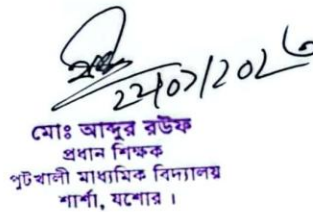 মোঃ আব্দুর রউফ
প্রধান শিক্ষক
পুটখালী মাধ্যমিক বিদ্যালয়
শার্শা, যশোর ।